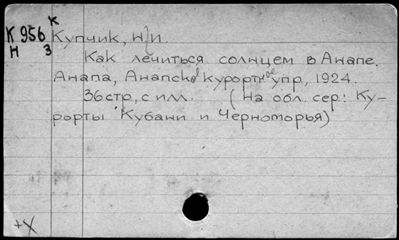 К
К 956 Купчик, Н.И.
Н 3
Как лечиться солнцем в Анапе.
Анапа, Анапское курортное упр, 1924.
36 стр, с илл. (На обл. сер: Ку-
рорты Кубани и Черноморья)
+X